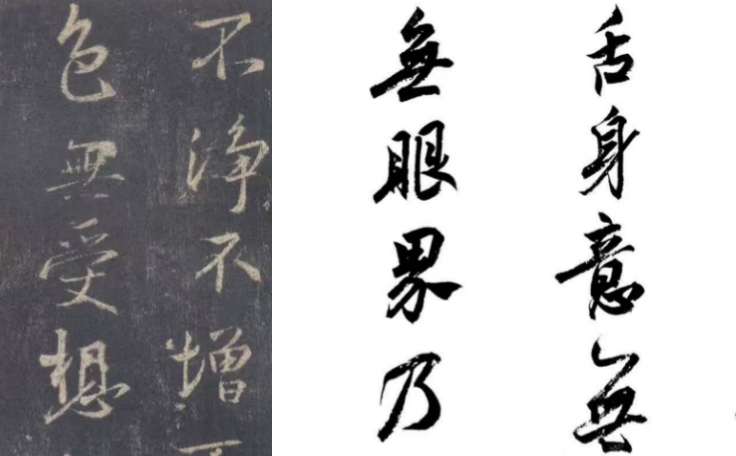 不浄不增
色無受想
舌身意無
無眼界乃